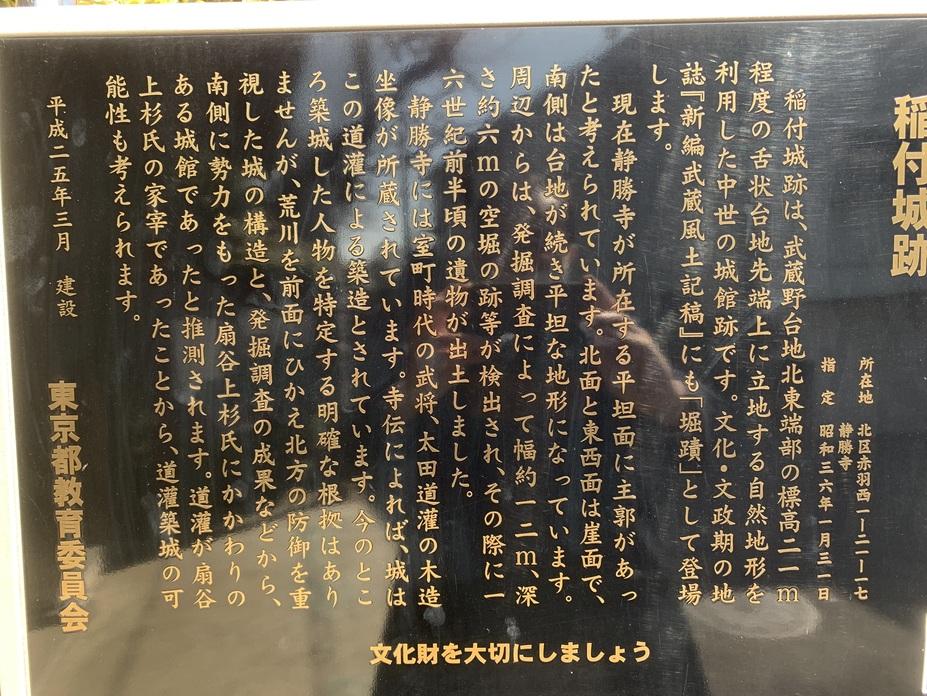 稲付城跡
所在地 北区赤羽西一―二一―一七
静勝寺
指定 昭和三六年一月三一日
稲付城跡は、武蔵野台地北東端部の標高二一m
程度の舌状台地先端上に立地する自然地形を
利用した中世の城館跡です。文化・文政期の地
誌『新編武蔵風土記稿』にも「堀蹟」として登場
します。
現在静勝寺が所在する平坦面に主郭があっ
たと考えられています。北面と東西面は崖面で、
南側は台地が続き平坦な地形になっています。
周辺からは、発掘調査によって幅約一二m、深
さ約六mの空堀の跡等が検出され、その際に一
六世紀前半頃の遺物が出土しました。
静勝寺には室町時代の武将、太田道灌の木造
坐像が所蔵されています。寺伝によれば、城は
この道灌による築造とされています。今のとこ
ろ築城した人物を特定する明確な根拠はあり
ませんが、荒川を前面にひかえ北方の防御を重
視した城の構造と、発掘調査の成果などから、
南側に勢力をもった扇谷上杉氏にかかわりの
ある城館であったと推測されます。道灌が扇谷
上杉氏の家宰であったことから、道灌築城の可
能性も考えられます。
平成二五年三月 建設
東京都教育委員会
文化財を大切にしましょう